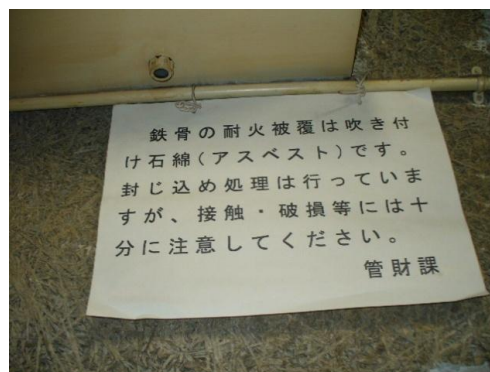 鉄骨の耐火被覆は吹き付
け石綿(アスベスト)です。
封じ込め処理は行っていま
すが、接触・破損等には十
分に注意してください。
管財課